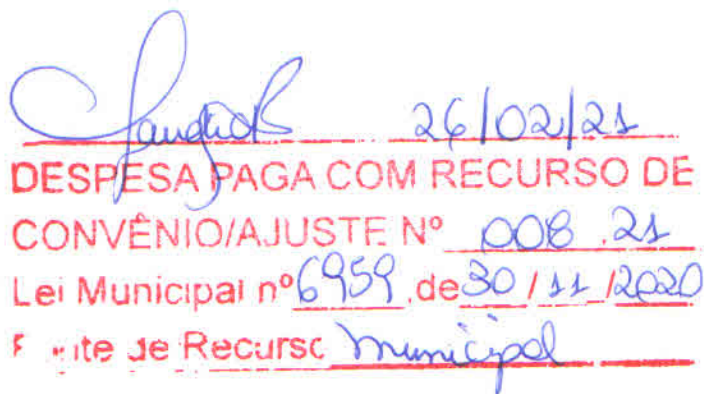 26/02/21
DESPESA PAGA COM RECURSO DE
CONVÊNIO/AJUSTE Nº 008.21
Lei Municipal nº 6959, de 30/11/2020
de Recurso Municipal